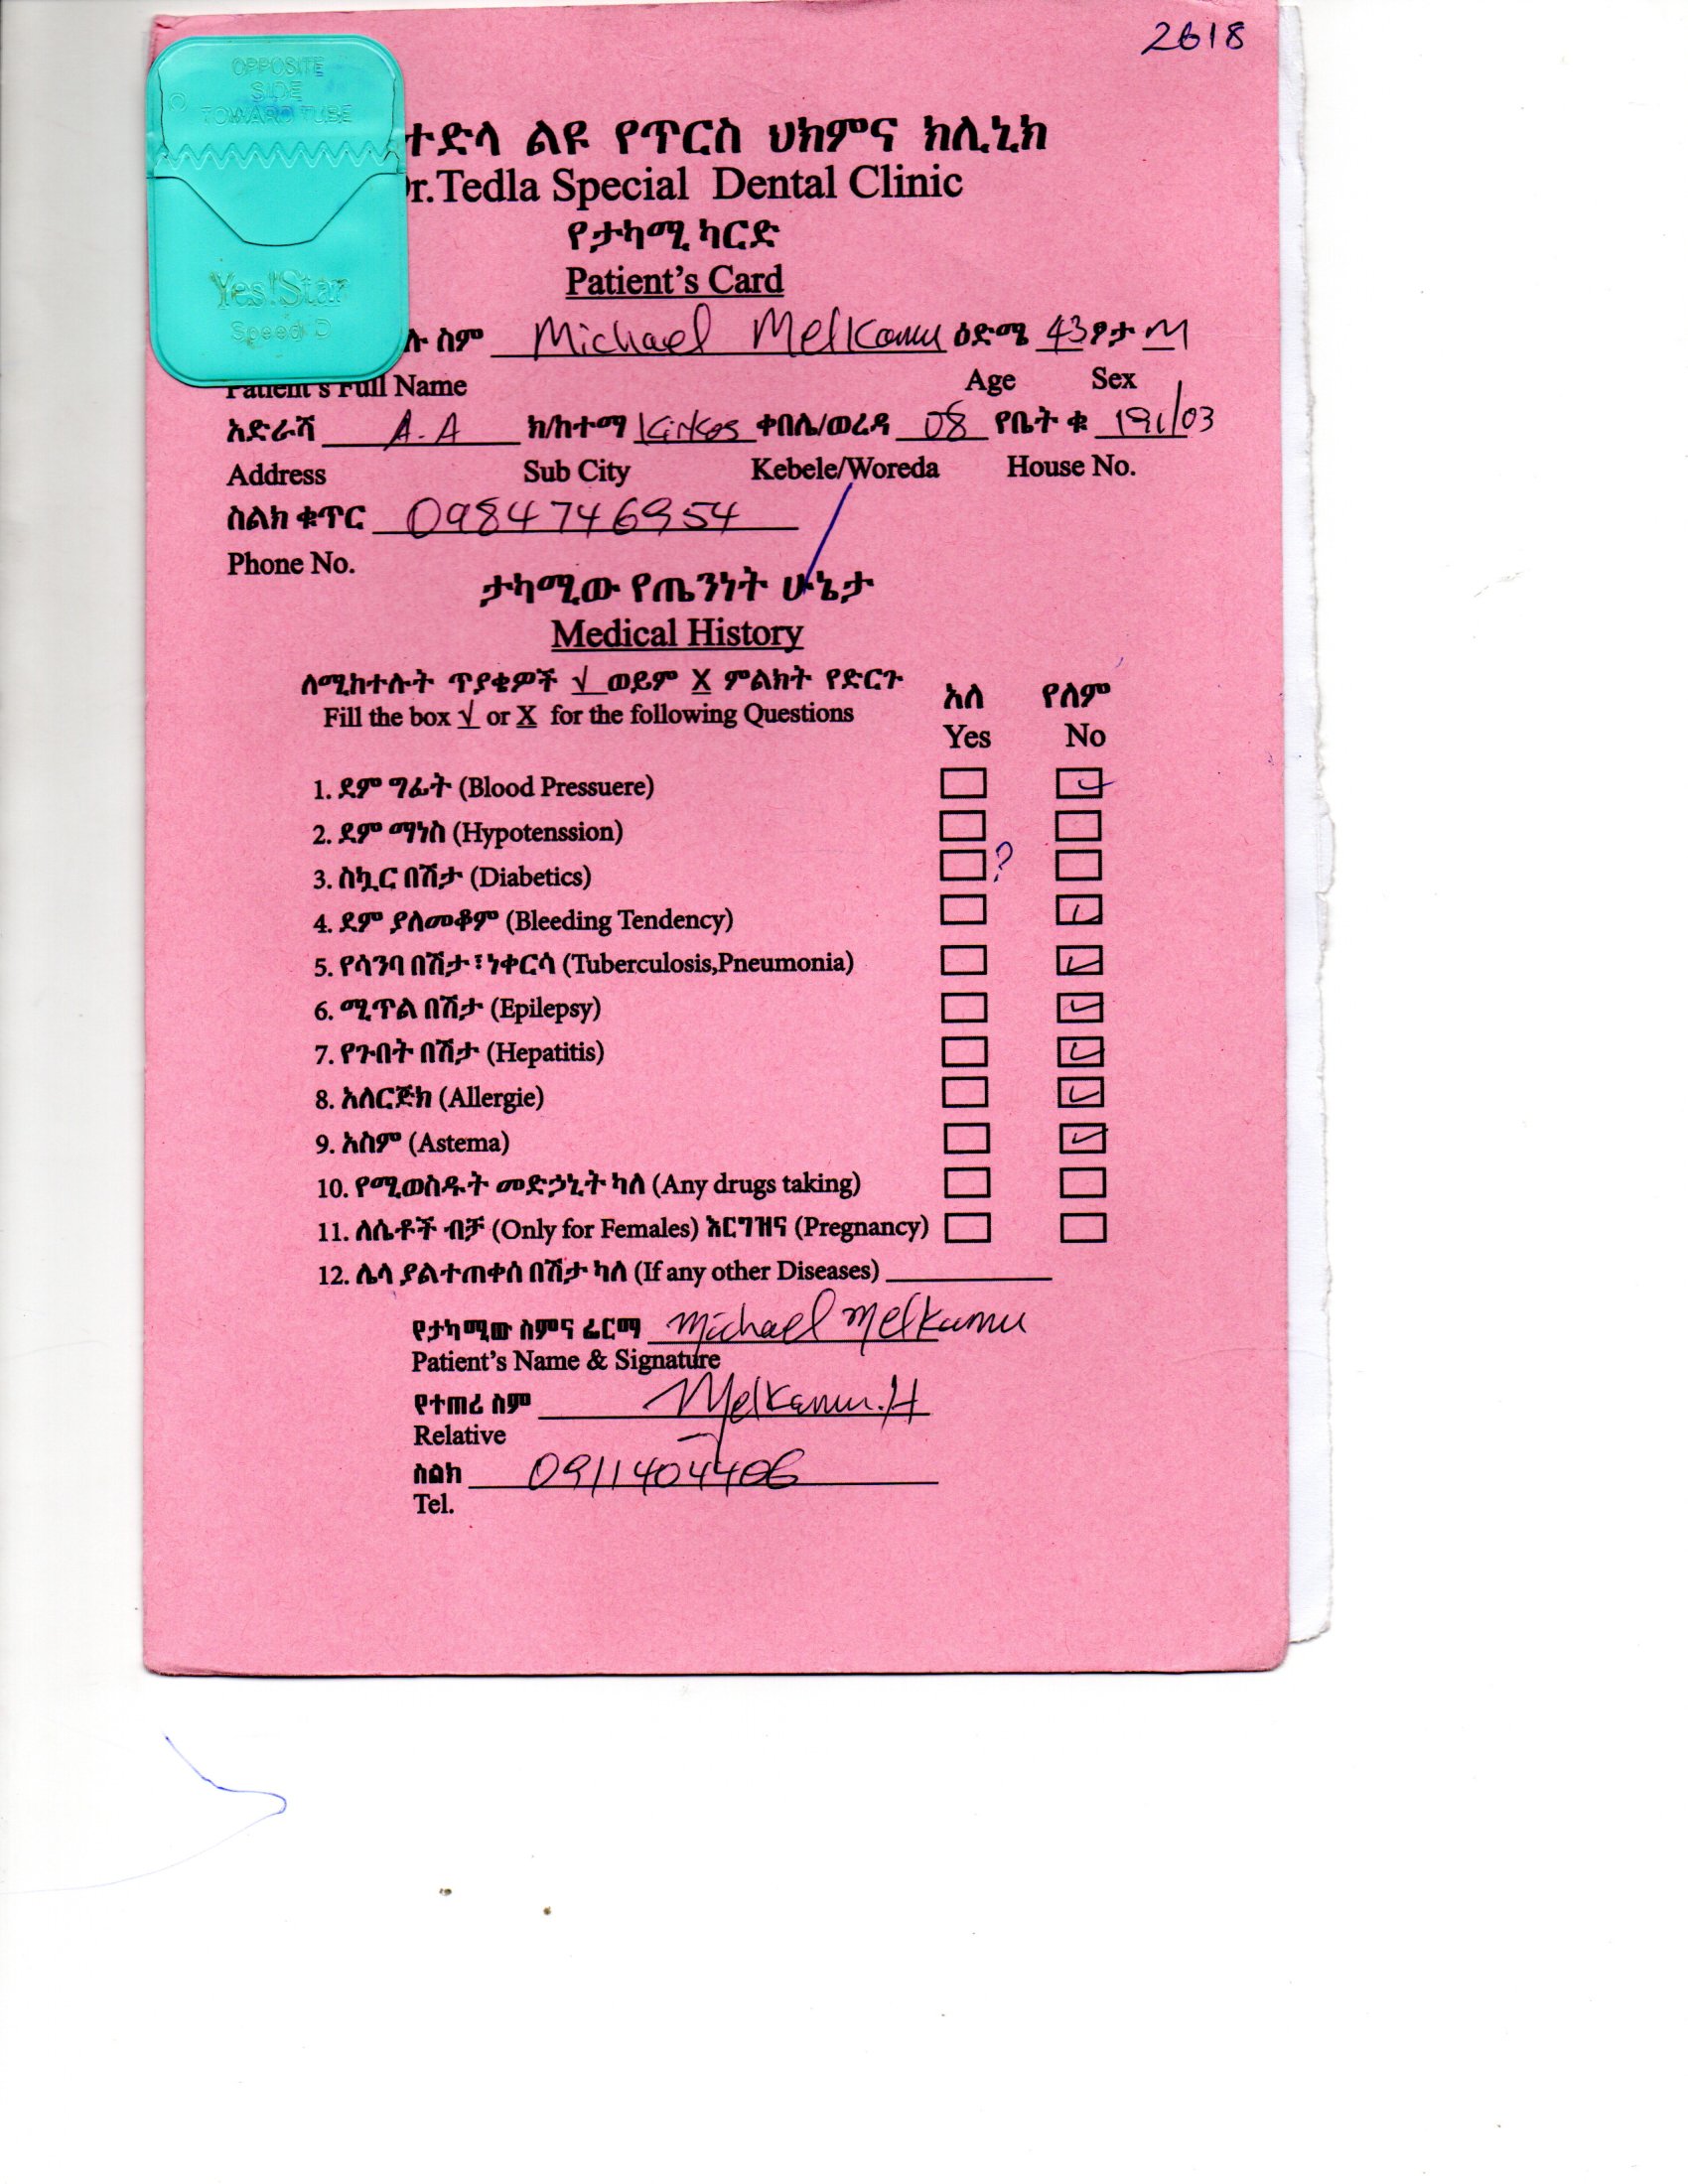 2618
OPPOSITE
SIDE
TOWARD TUBE
Yes!Star
Speed D
ተድላ ልዩ የጥርስ ህክምና ክሊኒክ
Dr.Tedla Special Dental Clinic
የታካሚ ካርድ
Patient's Card
ሉ ስም Michael Melkamu ዕድሜ 43 ፆታ M
Patient's Full Name Age Sex
አድራሻ A.A ክ/ከተማ Kirkos ቀበሌ/ወረዳ 08 የቤት ቁ
Address Sub City Kebele/Woreda House No.
ስልክ ቁጥር 0984746954
Phone No.
ታካሚው የጤንነት ሁኔታ
Medical History
ለሚከተሉት ጥያቄዎች √ ወይም X ምልክት የድርጉ አለ የለም
Fill the box √ or X for the following Questions Yes No
1. ደም ግፊት (Blood Pressuere)
2. ደም ማነስ (Hypotenssion)
3. ስኳር በሽታ (Diabetics) ?
4. ደም ያለመቆም (Bleeding Tendency)
5. የሳንባ በሽታ፣ ነቀርሳ (Tuberculosis,Pneumonia)
6. ሚጥል በሽታ (Epilepsy)
7. የጉበት በሽታ (Hepatitis)
8. አለርጅክ (Allergie)
9. አስም (Astema)
10. የሚወስዱት መድኃኒት ካለ (Any drugs taking)
11. ለሴቶች ብቻ (Only for Females) እርግዝና (Pregnancy)
12. ሌላ ያልተጠቀሰ በሽታ ካለ (If any other Diseases)
የታካሚው ስምና ፊርማ Michael Melkamu
Patient's Name & Signature
የተጠሪ ስም Melkamu.H
Relative
ስልክ 0911404406
Tel.